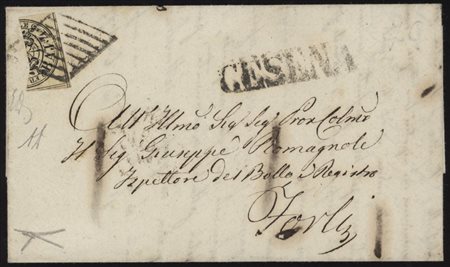 CESENA
All' Illmo Sig. Sig. Pron Colmo
Il Sig. Giuseppe Romagnoli
Ispettore del Bollo e Registro
Forlì